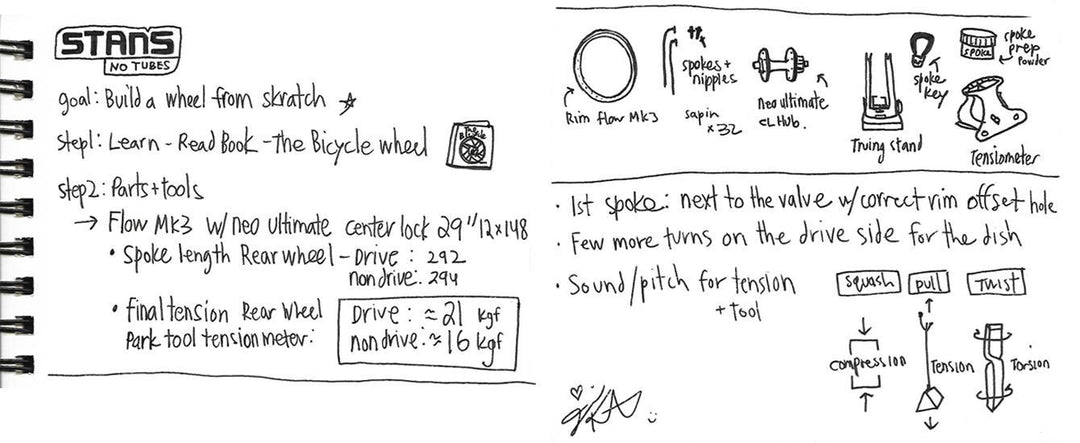 STAN'S
NO TUBES
goal: Build a wheel from skratch
Step1: Learn - Read Book - The Bicycle wheel
step2: Parts + tools
→ Flow Mk3 w/ neo ultimate center lock 29" 12x148
• Spoke length Rear wheel - Drive : 292
non drive: 294
• final tension Rear Wheel
Park tool tensionmeter:
Drive: ≈ 21 kgf
non drive: ≈ 16 kgf
Rim flow MK3
spokes +
nipples
sapin
x32
neo ultimate
CL Hub.
Truing stand
spoke
key
SPOKE
spoke
prep
powder
Tensiometer
• 1st spoke: next to the valve w/ correct rim offset hole
• Few more turns on the drive side for the dish
• Sound/pitch for tension
+ tool
squash
pull
Twist
compression
Tension
Torsion